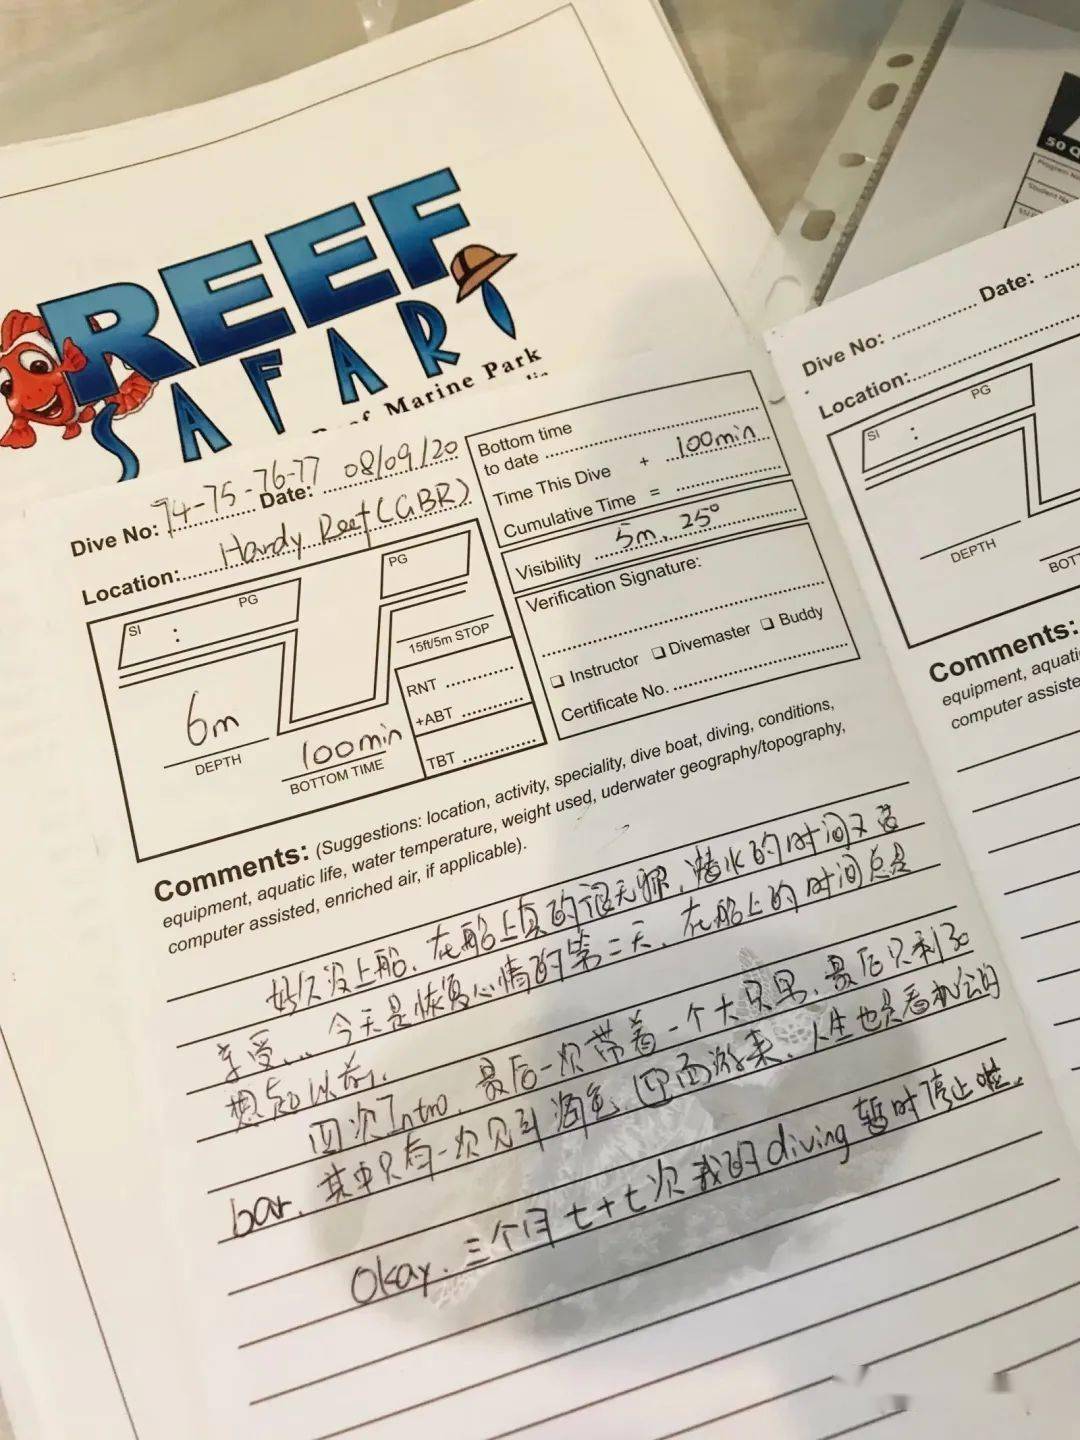 REEF
SAFARI
Marine Park
Dive No: 74-75-76-77 Date: 08/09/20
Location: Hardy Reef (GBR)
SI : PG
PG
15ft/5m STOP
6m
DEPTH
100min
BOTTOM TIME
RNT
+ABT
TBT
Bottom time
to date
Time This Dive + 100min
Cumulative Time =
Visibility 5m, 25°
Verification Signature:
❏ Instructor ❏ Divemaster ❏ Buddy
Certificate No.
Comments: (Suggestions: location, activity, speciality, dive boat, diving, conditions,
equipment, aquatic life, water temperature, weight used, uderwater geography/topography,
computer assisted, enriched air, if applicable).
好久没上船、在船上真的很无聊、潜水的时间又
享受... 今天是恢复心情的第二天、在船上的时间总是
想起以前、
四次Intro、最后一次带着一个大只男、最后只剩30
bar、其中只有一次见到、四面游来、人生也
Okay、三个月七十七次我的diving暂时停止啦、
50
Dive No: Date:
Location:
SI : PG
DEPTH
Comments:
computer assiste